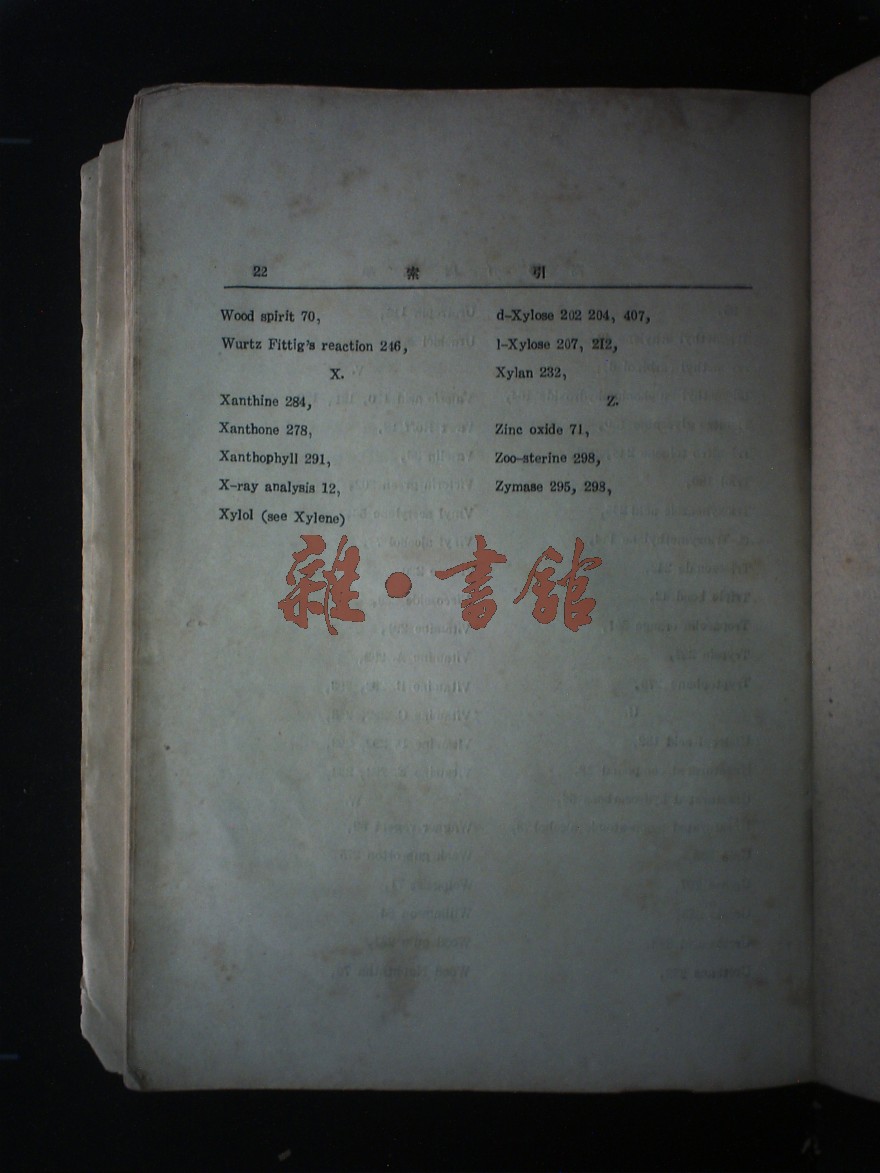 22 索引
Wood spirit 70,
Wurtz Fittig's reaction 246,
X.
Xanthine 284,
Xanthone 278,
Xanthophyll 291,
X-ray analysis 12,
Xylol (see Xylene)
d-Xylose 202 204, 407,
l-Xylose 207, 212,
Xylan 232,
Z.
Zinc oxide 71,
Zoo-sterine 298,
Zymase 295, 298,
雜·書館